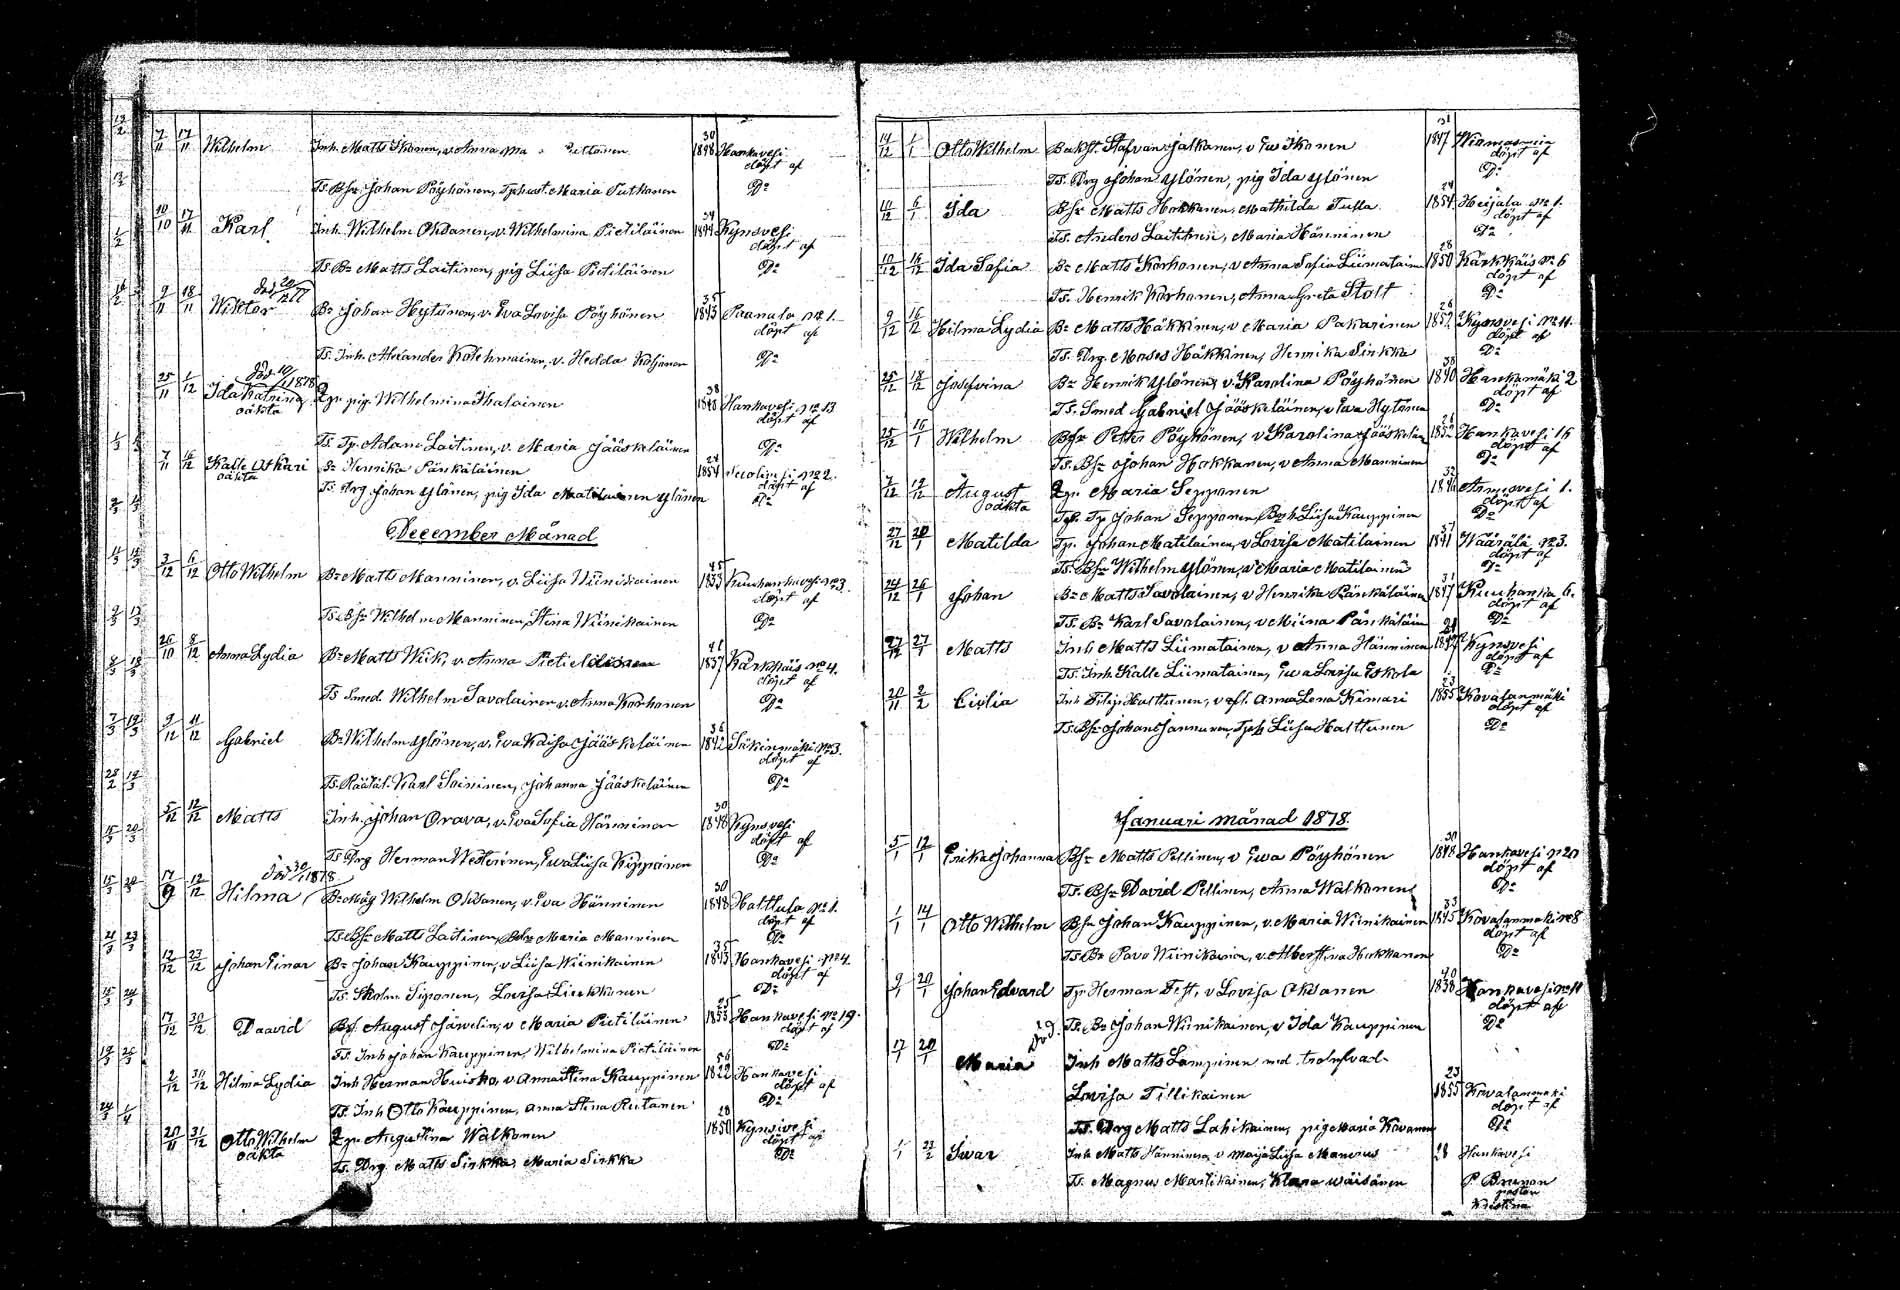 7/11 17/11 Wilhelm Inh. Matts Ikonen, v. Anna Ma Pettonen 30 1848 Hankavesi
döpt af
Ts. Bsr Johan Pöyhönen, Tphust. Maria Puttonen Do
10/10 17/11 Karl Inh. Wilhelm Oksanen, v. Wilhelmina Pietiläinen 34 1844 Kynsvesi
döpt af
Ts Bo Matts Laitinen, pig Liisa Pietiläinen Do
död 20/12 77
9/11 18/11 Wiktor Bo Johan Hytönen, v. Eva Lovisa Pöyhönen 35 1843 Paanala No 1.
döpt af
Ts. Inh. Alexander Kolehmainen, v. Hedda Koljonen Do
död 10/1 1878
25/11 1/12 Ida Katrina Qp. pig. Wilhelmina Ihalainen 38 1840 Hankavesi No 13
oäkta döpt af
Ts. Tp. Adam Laitinen, v. Maria Jääskeläinen Do
7/11 16/12 Kalle Oskari Henrika Pänkäläinen 24 1854 No 2.
oäkta döpt af
Ts. Drg Johan Ylönen, pig Ida Matilainen Ylönen Do
December Månad
3/12 6/12 Otto Wilhelm Bo Matts Manninen, v. Liisa Wiinikainen 45 1833 Kuuhankavesi No 3.
döpt af
Ts. Bsr Wilhelm Manninen, Stina Wiinikainen Do
26/10 8/12 Anna Lydia Bo Matts Wiik, v. Anna Pietiläinen 41 1837 Kärkkäis No 4.
döpt af
Ts Smed. Wilhelm Savalainen v. Anna Korhonen Do
9/12 11/12 Gabriel Bo Wilhelm Ylönen, v. Eva Kaisa Jääskeläinen 36 1842 Säkinmäki No 3.
döpt af
Ts. Räätäl. Karl Soininen, Johanna Jääskeläinen Do
5/12 12/12 Matts Inh. Johan Orava, v. Eva Sofia Hänninen 30 1848 Kynsvesi
döpt af
Ts Drg Herman Westerinen, Ewa Liisa Kyppainen Do
död 30/1 1878
17/9 12/12 Hilma Bo Måg Wilhelm Oksanen, v. Eva Hänninen 30 1848 Halttula No 1.
döpt af
Ts. Bsr Matts Laitinen, Maria Manninen Do
12/12 23/12 Johan Einar Bo Johan Kauppinen, v Liisa Wiinikainen 35 1843 Hankavesi No 4.
döpt af
Ts. Skolm Siponen, Lovisa Liukkonen Do
17/12 30/12 Daavid Bsr. August Jawelin, v Maria Pietiläinen 25 1853 Hankavesi No 19.
döpt af
Ts. Inh Johan Kauppinen, Wilhelmina Pietiläinen Do
2/12 30/12 Hilma Lydia Inh Herman Huisko, v. Anna Stina Kauppinen 56 1822 Hankavesi
döpt af
Ts. Inh Otto Kauppinen, Anna Stina Rutanen Do
20/11 31/12 Otto Wilhelm Qp. Augustina Walkonen 28 1850 Kynsivesi
oäkta döpt af
Ts. Drg. Matts Sirkka, Maria Sirkka Do
14/12 1/1 Otto Wilhelm Bakst. Stafvan Jalkanen, v Ewa Ikonen 31 1847 Wirmasmin
döpt af
Ts. Drg Johan Ylönen, pig Ida Ylönen Do
10/12 6/1 Ida Bsr Matts Hokkanen, Mathilda Tulla 24 1854 Heijala No 1.
döpt af
Ts. Anders Laitinen, Maria Hänninen Do
10/12 16/12 Ida Sofia Bo Matts Korhonen, v Anna Sofia Liimatainen 28 1850 Kärkkäis No 6
döpt af
Ts. Henrik Korhonen, Anna Greta Stolt Do
9/12 16/12 Hilma Lydia Bo Matts Häkkinen, v Maria Pakarinen 26 1852 Kynsvesi No 4.
döpt af
Ts. Drg. Moses Häkkinen, Henrika Sirkka Do
25/12 18/12 Josefvina Bo Henrik Ylönen, v. Karolina Pöyhönen 38 1840 Hankamäki 2
döpt af
Ts. Smed Gabriel Jääskeläinen, v Eva Hytönen Do
25/12 16/1 Wilhelm Bsr Petter Pöyhönen, v Karolina Jääskeläin 26 1852 Hankavesi 16
döpt af
Ts. Bsr Johan Hakkanen, v Anna Manninen Do
7/12 19/12 August Qp. Maria Sepponen 32 1846 Armisvesi 1.
oäkta döpt af
Ts. Tp Johan Sepponen, Liisa Kauppinen Do
27/12 20/1 Matilda Tp. Johan Matilainen, v Lovisa Matilainen 37 1841 Wäärälä No 3.
döpt af
Ts. Bsr Wilhelm Ylönen, v Maria Matilainen Do
24/12 26/1 Johan Bo Matts Savolainen, v Henrika Pänkäläinen 31 1847 Kuuhanka 6.
döpt af
Ts. Bo Karl Savalainen, v Miina Pänkäläin Do
27/12 27/1 Matts Inh Matts Liimatainen, v Anna Hänninen Kynsvesi
döpt af
Ts. Inh Kalle Liimatainen, Ewa Lovisa Eskola Do
20/11 2/2 Cislia Inh Filip Halttunen, v Anna Lena Kimari 23 1855 Kovalanmäki
döpt af
Ts. Bsr Johan Jannunen, Liisa Halttunen Do
Januari månad 1878.
5/1 12/1 Erika Johanna Bsr Matts Pellinen, v Ewa Pöyhönen 30 1848 Hankavesi No 20
döpt af
Ts. Bsr David Pellinen, Anna Walkonen Do
1/1 14/1 Otto Wilhelm Bsr Johan Kauppinen, v. Maria Wiinikainen 33 1845 Kovalanmäki No 8
döpt af
Ts Bo Pavo Wiinikainen, v. Albertina Hakkanen Do
9/1 20/1 Johan Edvard Tp. Herman Test, v Lovisa Oksanen 40 1838 Hankavesi No 11
döpt af
Ts. Bo Johan Wiinikainen, v Ida Kauppinen Do
död.
17/1 20/1 Maria Inh Matts Lampinen med trolofvad
Lovisa Tillikainen 23 1855 Kovalanmäki
döpt af
Ts. Drg Matts Lahikainen, pig Maria Kovanen Do
1/1 23/2 Iwar Inh Matts Hänninen, v Maija Liisa Manninen 28 Hankavesi
Ts. Magnus Martikainen, Klara Wäisänen P Brunon
pastor
Kristina